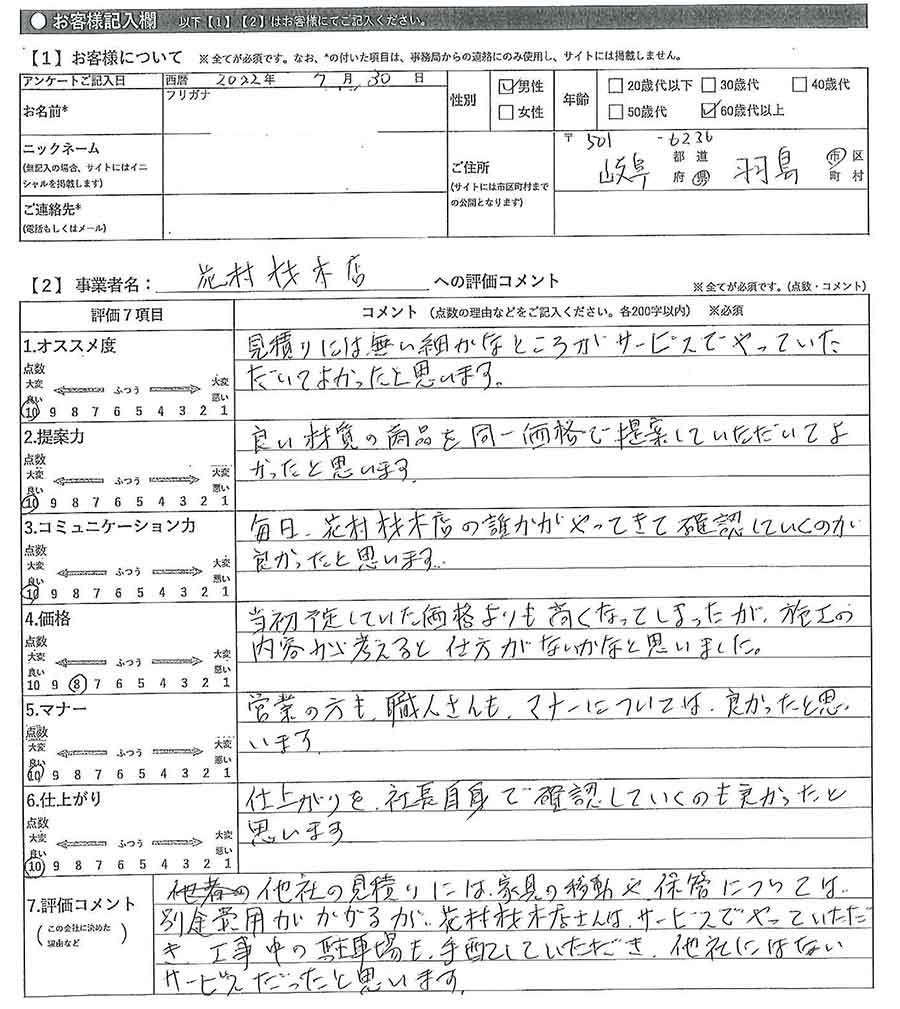 ● お客様記入欄 以下【1】【2】はお客様にてご記入ください。
【1】お客様について ※全てが必須です。なお、*の付いた項目は、事務局からの連絡にのみ使用し、サイトには掲載しません。
アンケートご記入日 西暦 2022年 7月 30日
お名前* フリガナ
性別 ☑男性 □女性
年齢 □20歳代以下 □30歳代 □40歳代
□50歳代 ☑60歳代以上
ニックネーム
(無記入の場合、サイトにはイニ
シャルを掲載します)
ご連絡先*
(電話もしくはメール)
ご住所
(サイトには市区町村まで
の公開となります)
〒 501 - 6236
岐阜 都 道 府 県 羽島 市 区 町 村
【2】事業者名: 花村材木店 への評価コメント ※全てが必須です。(点数・コメント)
評価7項目 コメント (点数の理由などをご記入ください。各200字以内) ※必須
1.オススメ度
点数
大変 良い ふつう 大変 悪い
10 9 8 7 6 5 4 3 2 1
見積りには無い細かなところがサービスでやっていた
だいてよかったと思います。
2.提案力
点数
大変 良い ふつう 大変 悪い
10 9 8 7 6 5 4 3 2 1
良い材質の商品を同一価格で提案していただいてよ
かったと思います
3.コミュニケーション力
点数
大変 良い ふつう 大変 悪い
10 9 8 7 6 5 4 3 2 1
毎日、花村材木店の誰かがやってきて確認していくのが
良かったと思います.
4.価格
点数
大変 良い ふつう 大変 悪い
10 9 8 7 6 5 4 3 2 1
当初予定していた価格よりも高くなってしまったが、施工の
内容から考えると仕方がないかなと思いました。
5.マナー
点数
大変 良い ふつう 大変 悪い
10 9 8 7 6 5 4 3 2 1
営業の方も、職人さんも、マナーについては、良かったと思
います
6.仕上がり
点数
大変 良い ふつう 大変 悪い
10 9 8 7 6 5 4 3 2 1
仕上がりを、社長自身で確認していくのも良かったと
思います
7.評価コメント
(この会社に決めた
理由など)
他社の見積りには、家具の移動や保管については、
別途費用がかかるが、花村材木店さんは、サービスでやっていただ
き、工事中の駐車場も、手配していただき、他社にはない
サービスだったと思います。